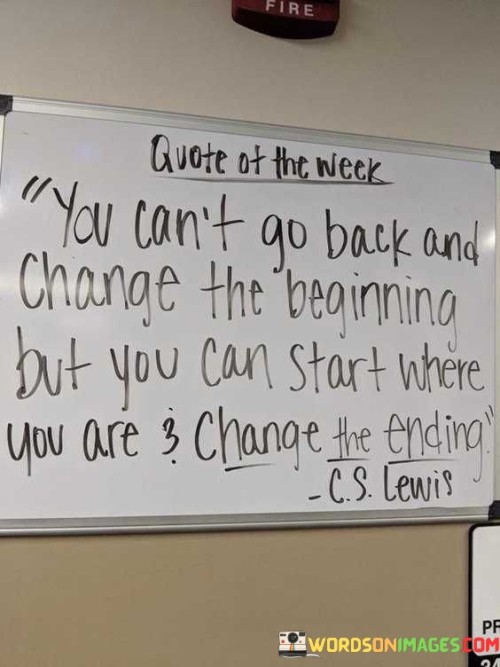 FIRE
Quote of the Week
"You can't go back and
change the beginning
but you can start where
you are & change the ending."
- C.S. Lewis
PR
WORDSONIMAGES.COM